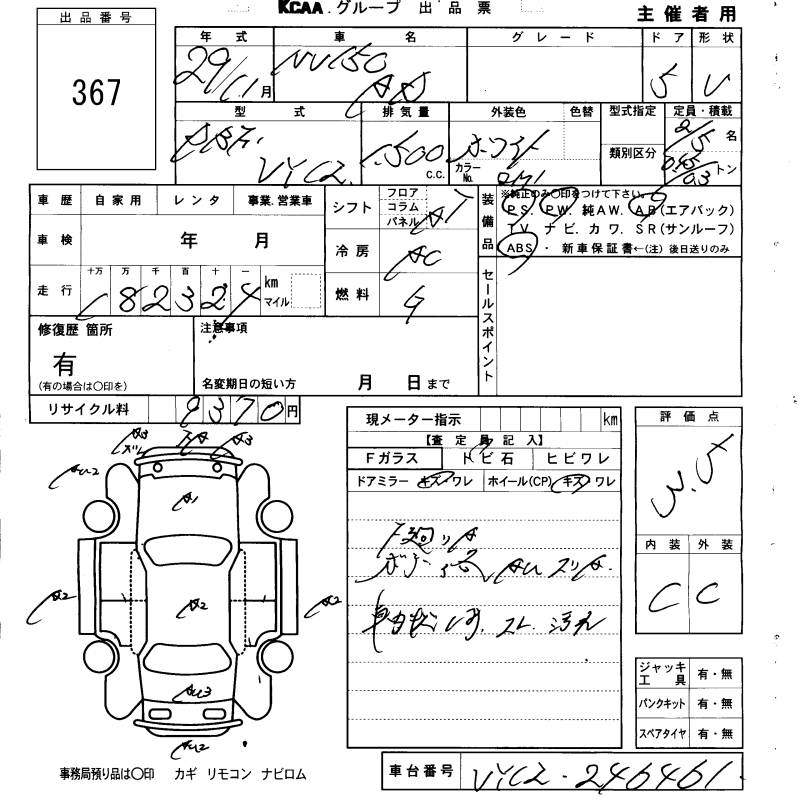 KCAA.グループ 出品票
主催者用
出品番号
367
年式 車名 グレード ドア 形状
29/11月 NV150 AD 5 V
型式 排気量 外装色 色替 型式指定 定員・積載
VY12 1,500 c.c. ホワイト カラーNo. 類別区分 2/5 名
トン
車歴 自家用 レンタ 事業.営業車
シフト フロア コラム パネル AT
車検 年 月
冷房 AC
走行 十万 万 千 百 十 一 km マイル
182324
燃料 G
装備品 ※純正のみ〇印をつけて下さい。
PS. PW. 純AW. AB(エアバック)
TV. ナビ. カワ. SR(サンルーフ)
ABS ・ 新車保証書←(注) 後日送りのみ
セールスポイント
修復歴 箇所 注意事項
有
(有の場合は〇印を) 名変期日の短い方 月 日まで
リサイクル料 9370円
現メーター指示 km
【査定員記入】
Fガラス トビ石 ヒビワレ
ドアミラー キズ・ワレ ホイール(CP) キズ・ワレ
評価点
3.5
内装 外装
C C
A3 A3
AU2
A1
下廻りA
A2 A2 A2
AU3
AU2
ジャッキ工具 有・無
パンクキット 有・無
スペアタイヤ 有・無
事務局預り品は〇印 カギ リモコン ナビロム
車台番号 VY12-246461